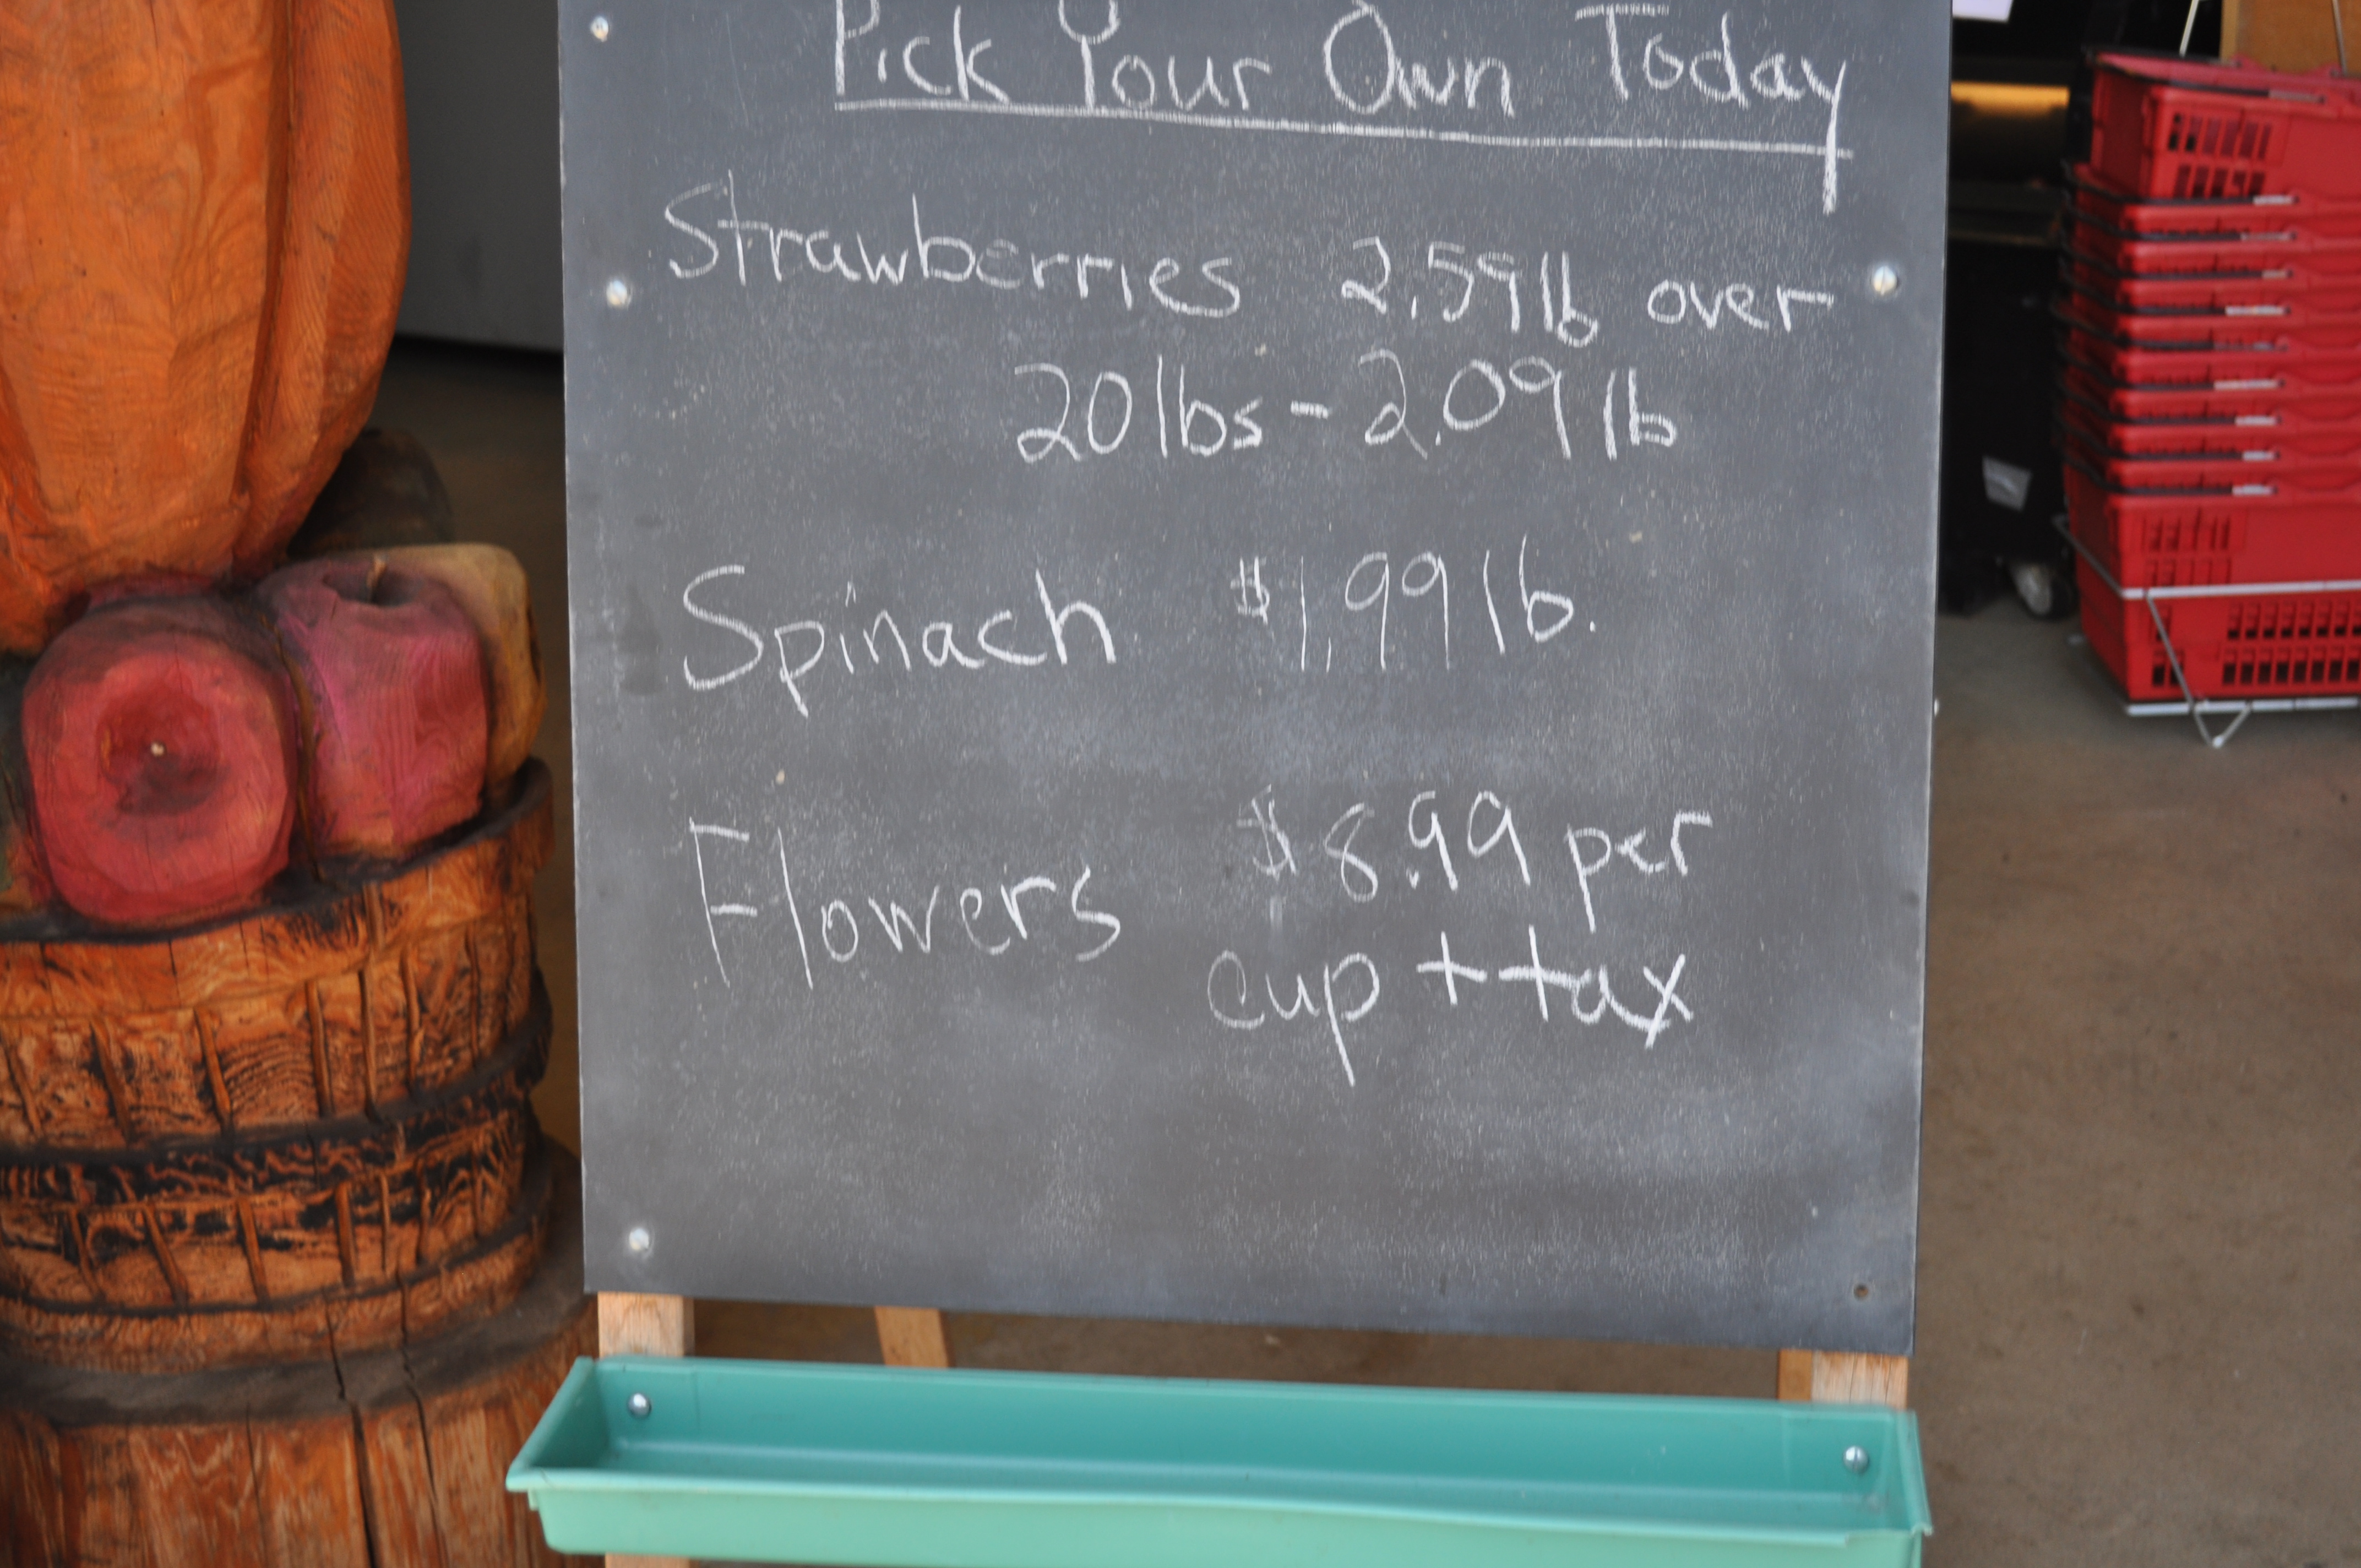 Pick Your Own Today
Strawberries 2.59lb over
20lbs - 2.09 lb
Spinach $1.99 lb.
Flowers $8.99 per
cup + tax